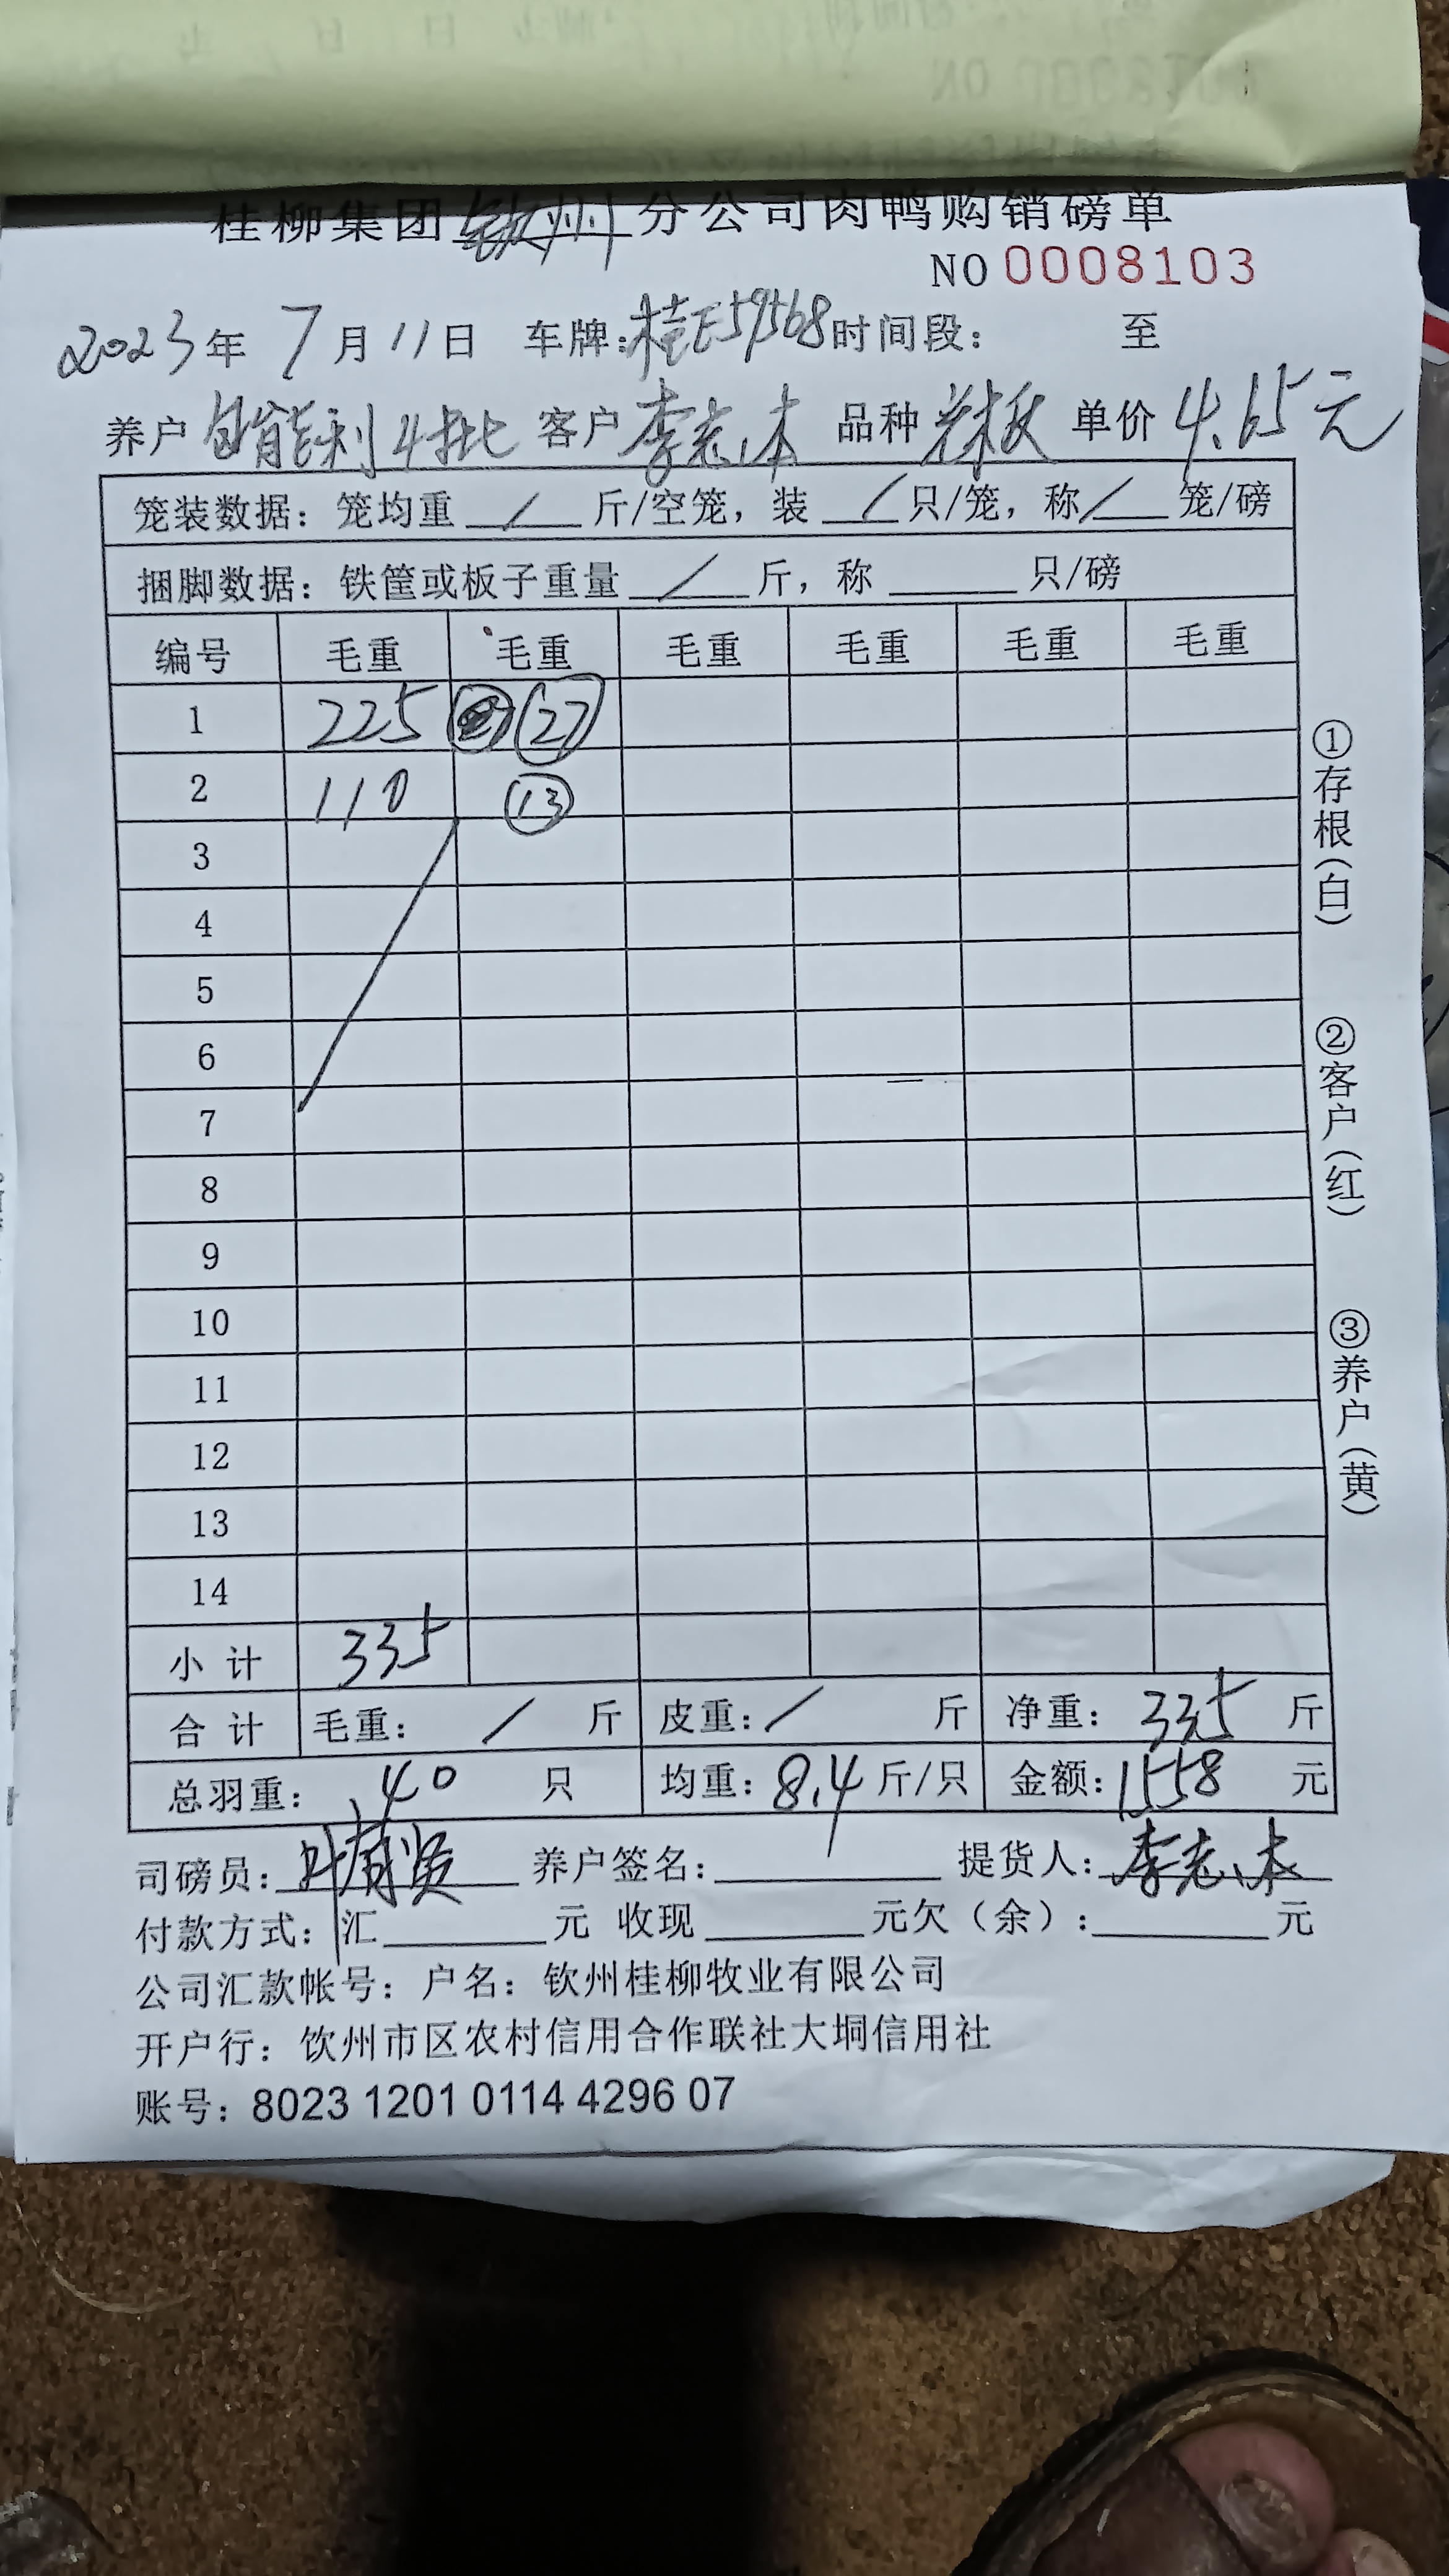 桂柳集团钦州分公司肉鸭购销磅单
NO 0008103
2023年 7月11日 车牌:桂E59568时间段: 至
养户 能利4批 客户李志本 品种 单价 4.65元
笼装数据: 笼均重 / 斤/空笼, 装 / 只/笼, 称 / 笼/磅
捆脚数据: 铁筐或板子重量 / 斤, 称 只/磅
编号 毛重 毛重 毛重 毛重 毛重 毛重
1 225 27
2 110 13
3
4
5
6
7
8
9
10
11
12
13
14
小计 335
合计 毛重: / 斤 皮重: / 斤 净重: 335 斤
总羽重: 40 只 均重: 8.4 斤/只 金额: 1558 元
司磅员: 叶 养户签名: 提货人: 李志本
付款方式: 汇 元 收现 元欠(余): 元
公司汇款帐号: 户名: 钦州桂柳牧业有限公司
开户行: 饮州市区农村信用合作联社大垌信用社
账号: 8023 1201 0114 4296 07
①存根(白)
②客户(红)
③养户(黄)